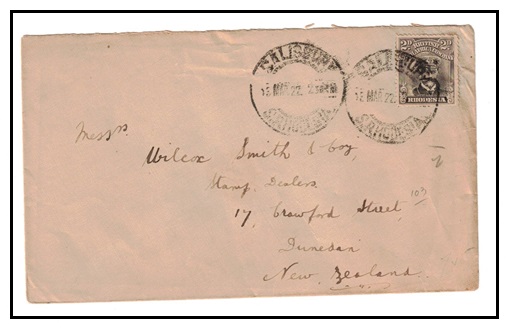 SALISBURY
12 MAR 22
S.RHODESIA
SALISBURY
12 MAR 22
S.RHODESIA
2D BRITISH SOUTH AFRICA COMPANY 2D
RHODESIA
Messrs
Wilcox Smith & Coy,
Stamp Dealers
17, Crawford Street
103
Dunedin
New Zealand